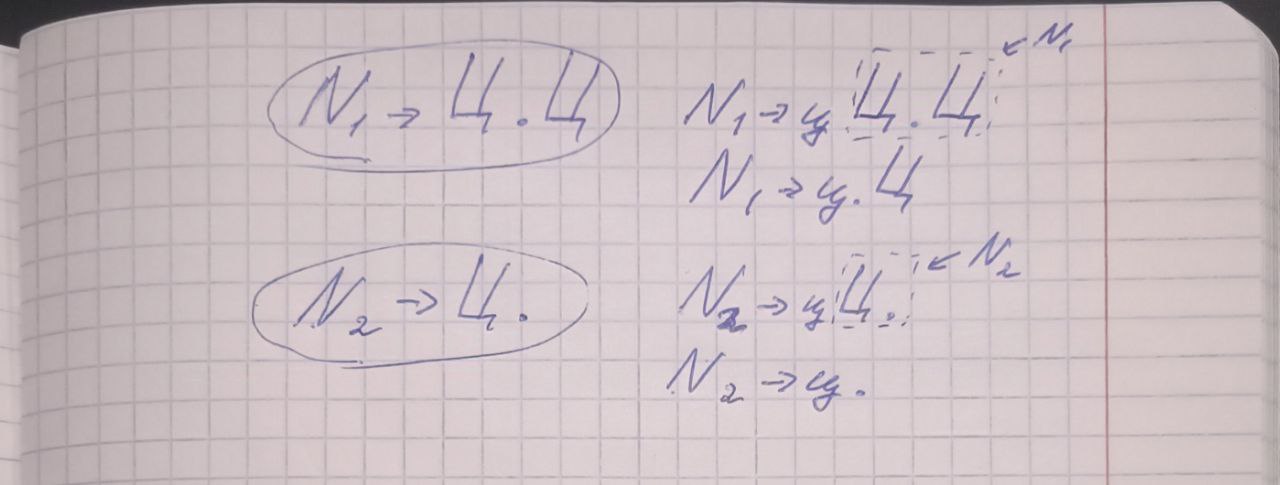 N₁ → Ц.Ц N₁ → цЦ.Ц ← N₁
N₁ → ц.Ц
N₂ → Ц. N₂ → цЦ. ← N₂
N₂ → ц.